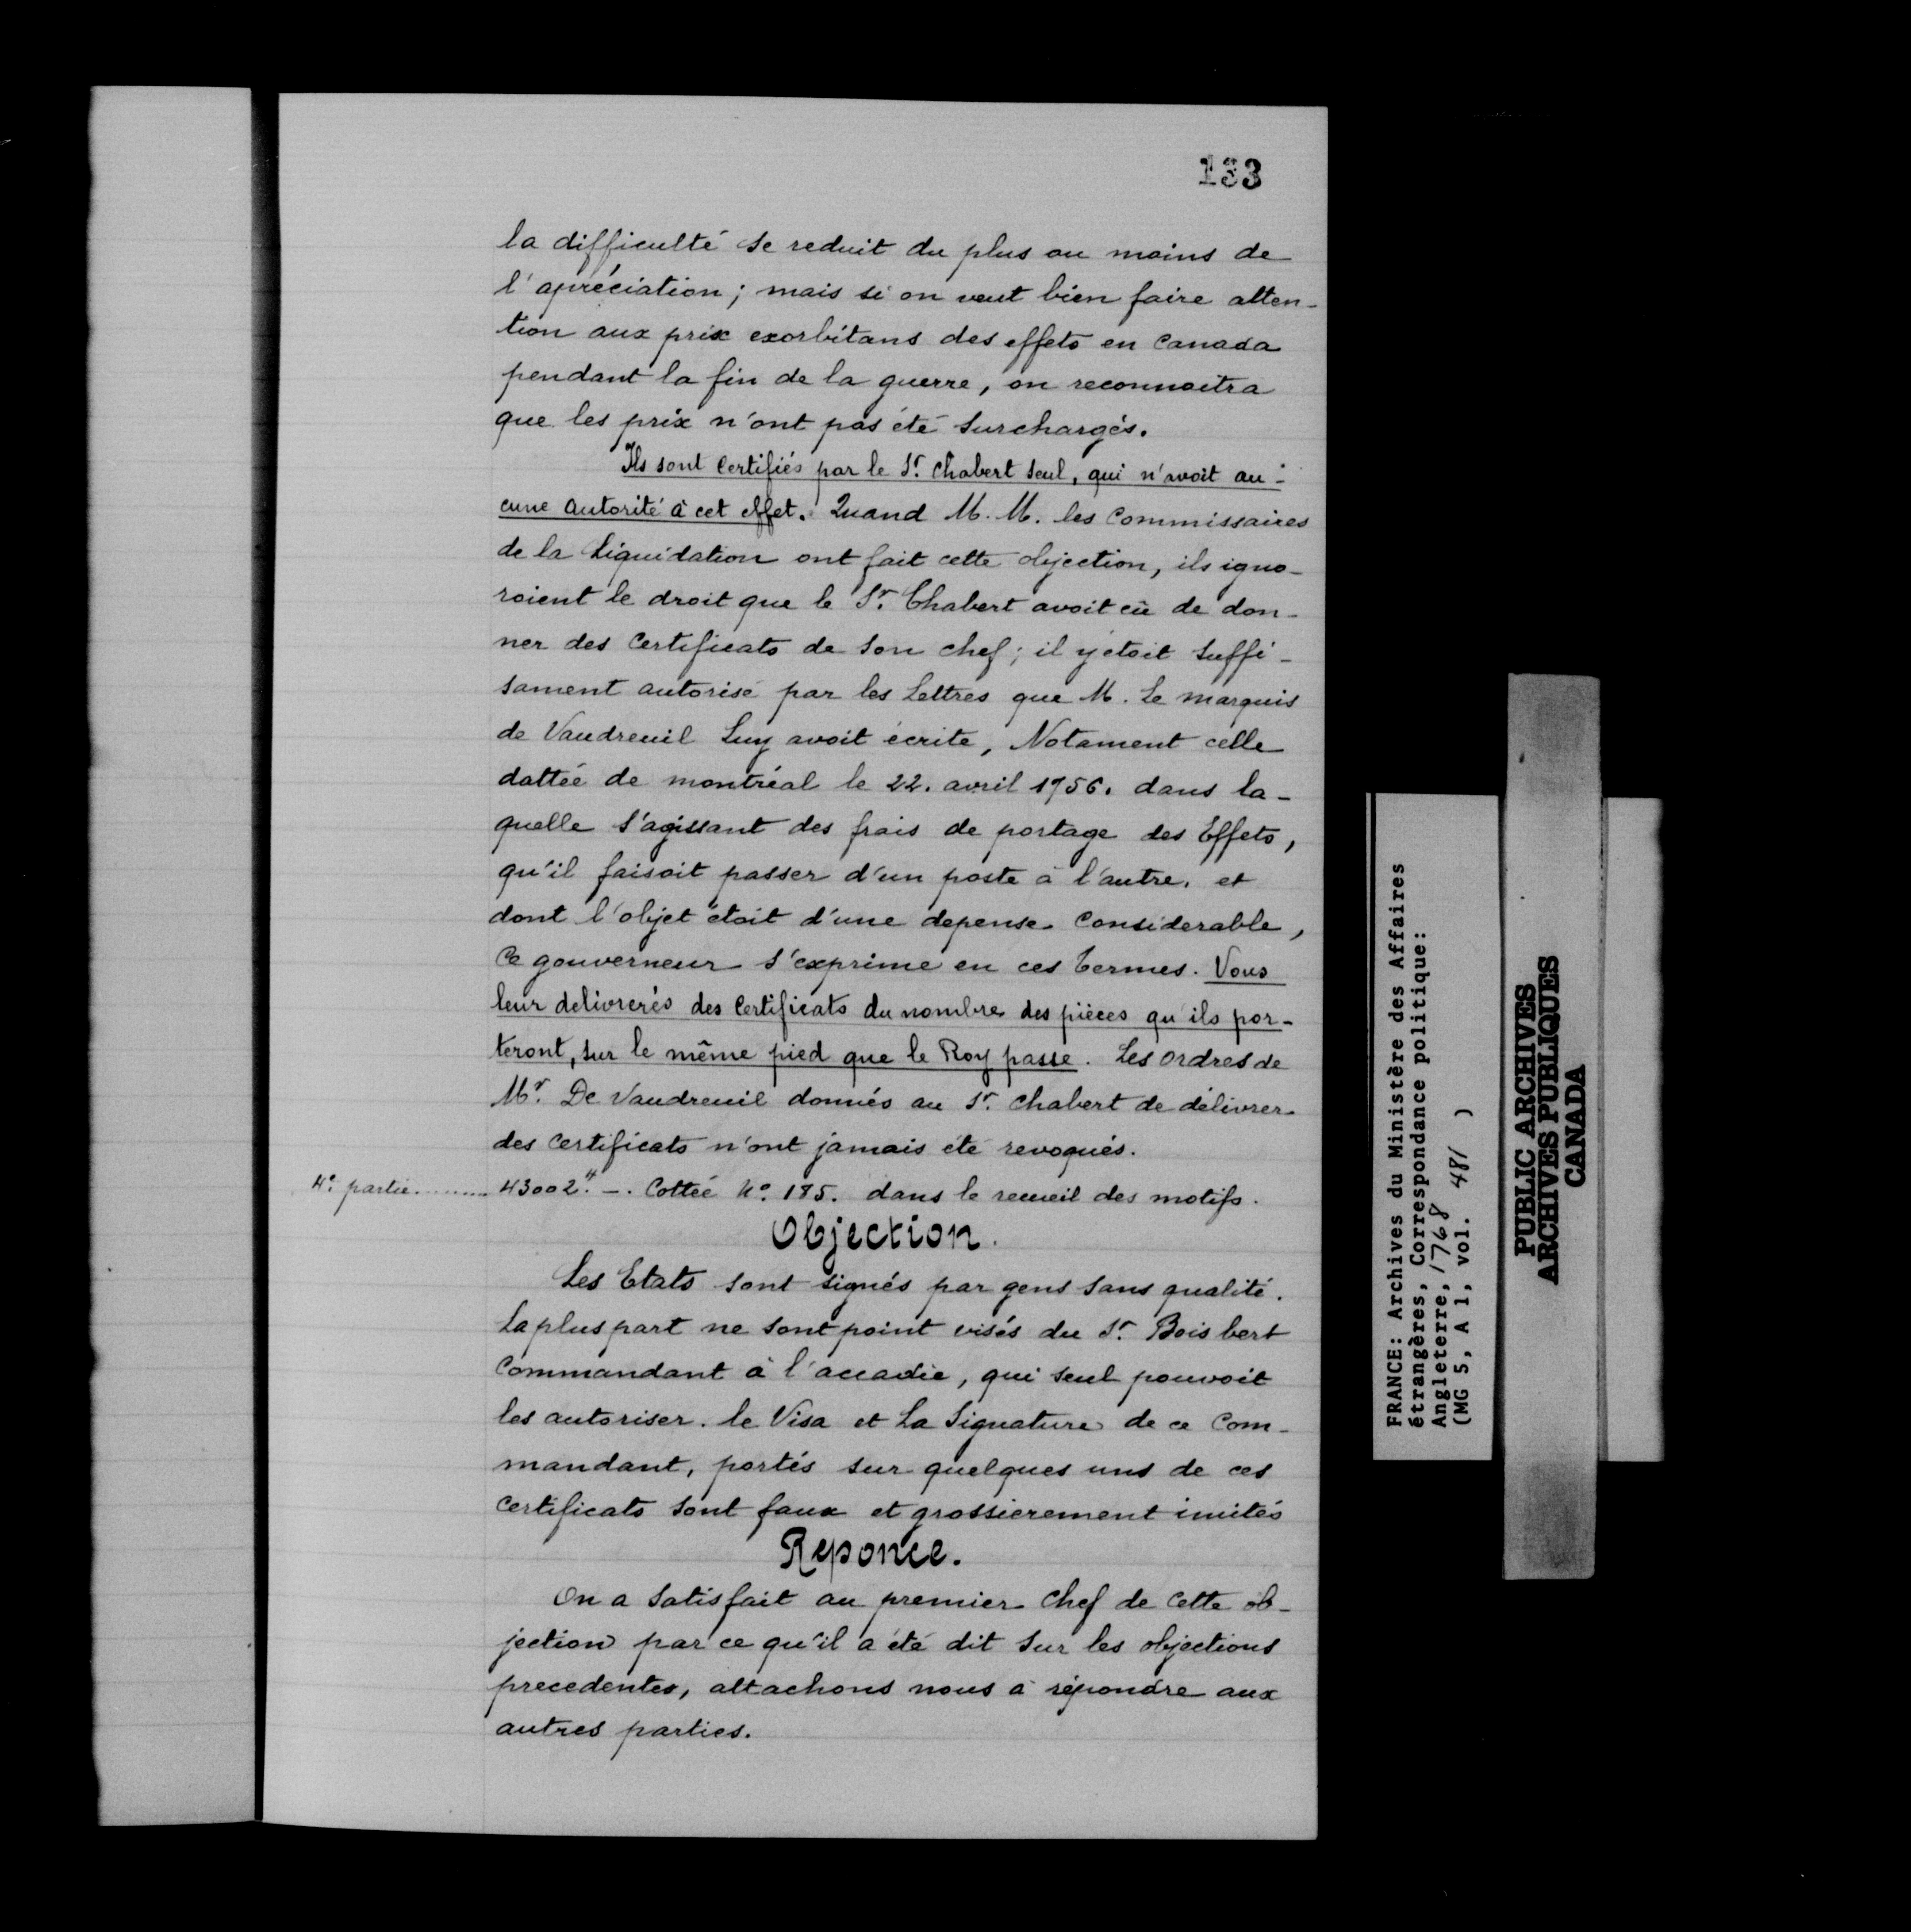 133
la difficulté se reduit du plus ou moins de
l'apréciation; mais si on veut bien faire atten-
tion aux prix exorbitans des effets en Canada
pendant la fin de la guerre, on reconnoitra
que les prix n'ont pas été surchargés.
Ils sont Certifiés par le Sr. Chabert seul, qui n'avoit au-
cune autorité à cet effet. Quand M. M. les Commissaires
de la Liquidation ont fait cette objection, ils igno-
roient le droit que le Sr. Chabert avoit eû de don-
ner des Certificats de son chef; il y étoit suffi-
sament autorisé par les Lettres que M. Le marquis
de Vaudreuil Luy avoit écrite, Notament celle
dattée de montréal le 22. avril 1756. dans la-
quelle s'agissant des frais de portage des Effets,
qu'il faisoit passer d'un poste à l'autre, et
dont l'objet étoit d'une depense Considerable,
Ce gouverneur s'exprime en ces termes. Vous
leur delivrerés des Certificats du nombre des pièces qu'ils por-
teront, sur le même pied que le Roy passe. Les ordres de
Mr. De Vaudreuil donnés au Sr. Chabert de délivrer
des Certificats n'ont jamais été revoqués.
4e. partie......... 43002.ᴴ —. Cottée No. 185. dans le recueil des motifs.
Objection.
Les Etats sont signés par gens sans qualité.
La plus part ne sont point visés du Sr. Bois bert
Commandant à l'accadie, qui seul pouvoit
les autoriser. le Visa et La Signature de ce Com-
mandant, portés sur quelques uns de ces
Certificats sont faux et grossierement imités
Reponce.
On a satisfait au premier Chef de Cette ob-
jection par ce qu'il a été dit sur les objections
precedentes, attachons nous à répondre aux
autres parties.
FRANCE: Archives du Ministère des Affaires
étrangères, Correspondance politique:
Angleterre, 1768
(MG 5, A 1, vol. 481 )
PUBLIC ARCHIVES
ARCHIVES PUBLIQUES
CANADA